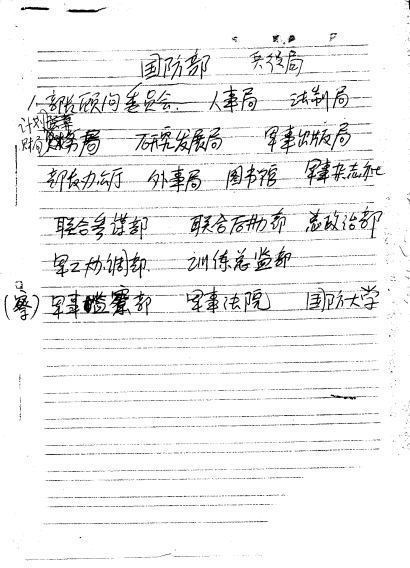 国防部 兵役局
部长顾问委员会 人事局 法制局
计划
财务局 研究发展局 军事出版局
部长办公厅 外事局 图书馆 军事杂志社
联合参谋部 联合后勤部 总政治部
军工协调部 训练总监部
(察) 军事监察部 军事法院 国防大学